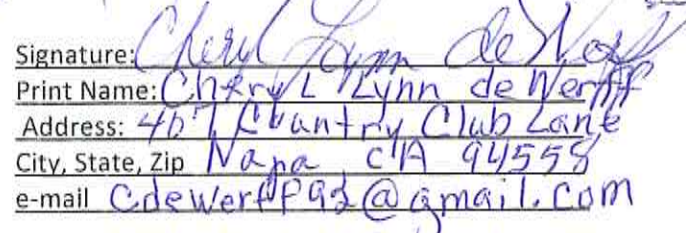 Signature: Cheryl Lynn de Werff
Print Name: Cheryl Lynn de Werff
Address: 467 Country Club Lane
City, State, Zip Napa CA 94558
e-mail cdewerff92@gmail.com